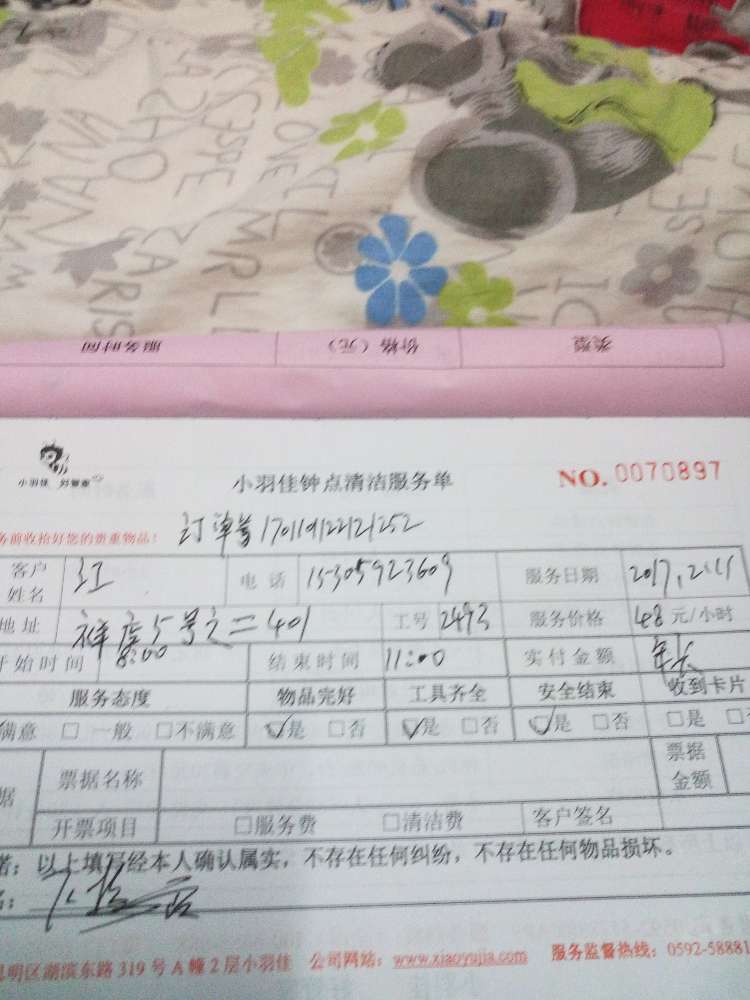 类型 价格（元） 服务时间
小羽佳 好管家
小羽佳钟点清洁服务单
NO. 0070897
务前收拾好您的贵重物品！
订单号
客户姓名 江 电话 15305923609 服务日期 2017.2.11
地址 祥店5号之二401 工号 2493 服务价格 48元/小时
开始时间 8:00 结束时间 11:00 实付金额 年卡
服务态度 物品完好 工具齐全 安全结束 收到卡片
满意 □一般 □不满意 ☑是 □否 ☑是 □否 ☑是 □否 □是 □
据 票据名称 票据金额
开票项目 □服务费 □清洁费 客户签名
诺：以上填写经本人确认属实，不存在任何纠纷，不存在任何物品损坏。
名：
思明区湖滨东路319号A幢2层小羽佳 公司网站：www.xiaoyujia.com 服务监督热线：0592-58881